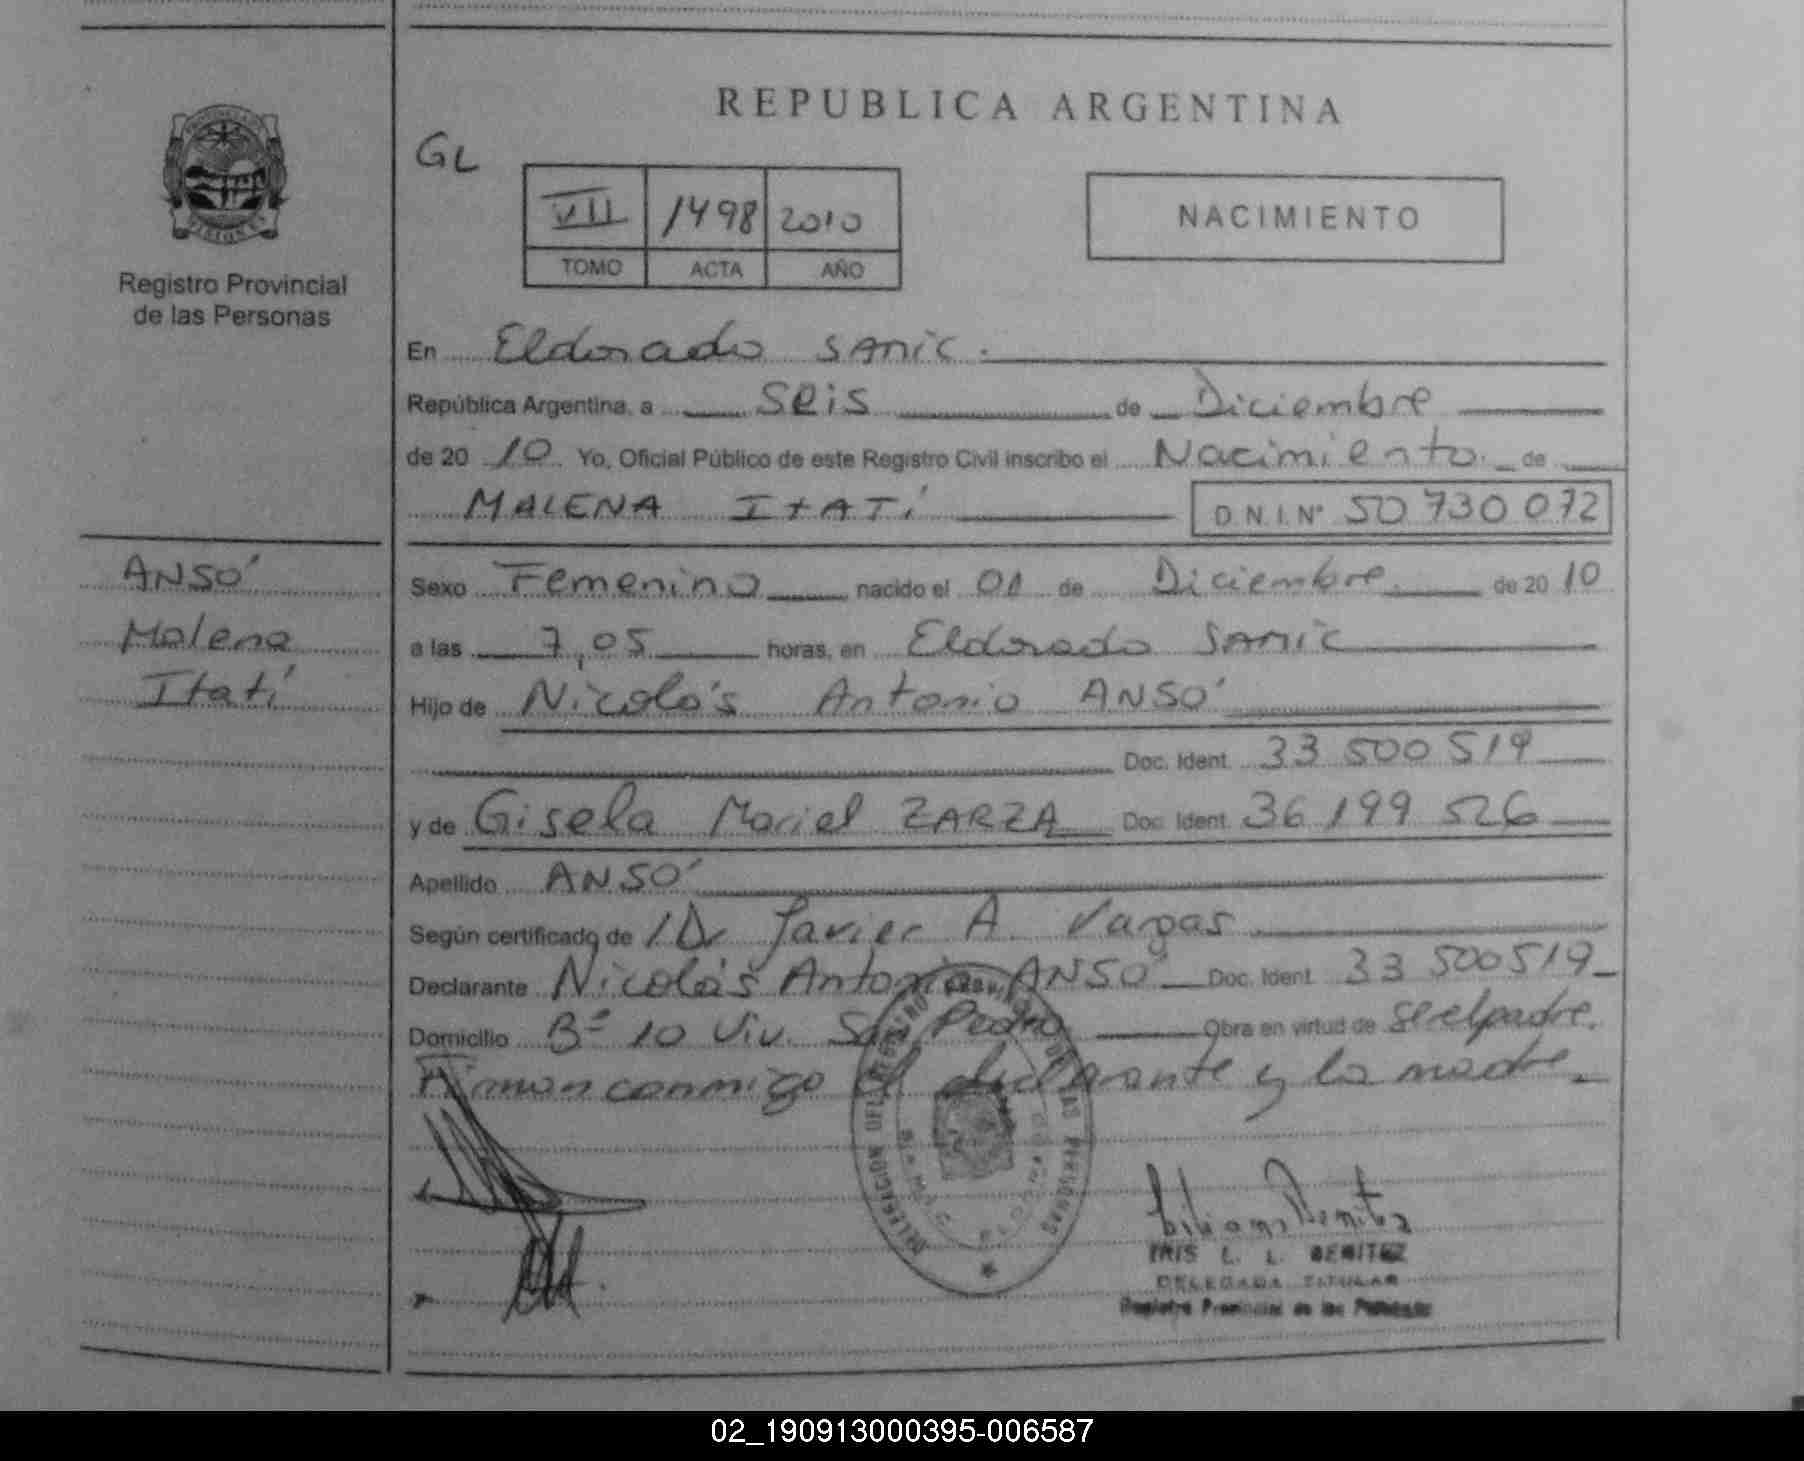 REPUBLICA ARGENTINA
GL
VII 1498 2010
TOMO ACTA AÑO
NACIMIENTO
Registro Provincial
de las Personas
En Eldorado SAMIC.
República Argentina, a Seis de Diciembre
de 2010 Yo, Oficial Público de este Registro Civil inscribo el Nacimiento de
MALENA ITATí D.N.I.Nº 50 730 072
ANSÓ
Malena
Itatí
Sexo Femenino nacido el 01 de Diciembre de 2010
a las 7,05 horas, en Eldorado SAMIC
Hijo de Nicolás Antonio ANSÓ
Doc. Ident. 33 500 519
y de Gisela Mariel ZARZA Doc. Ident. 36 199 526
Apellido ANSÓ
Según certificado de Dr Javier A. Vargas
Declarante Nicolás Antonio ANSÓ Doc. Ident. 33 500519
Domicilio Bº 10 Viv. San Pedro Obra en virtud de ser el padre.
Firman conmigo el declarante y la madre
DELEGACION DEL REGISTRO PROVINCIAL DE LAS PERSONAS
IRIS L. L. BENITEZ
DELEGADA TITULAR
Registro Provincial de las Personas
02_190913000395-006587